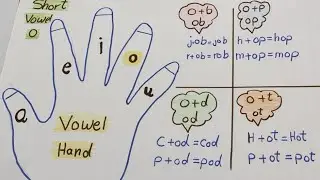 Short
Vowel
O
a
e
i
o
u
Vowel
Hand
o+b
ob
job=job
r+ob=rob
o+p
op
h+op=hop
m+op=mop
o+d
od
C+od=Cod
P+od=pod
o+t
ot
H+ot=Hot
P+ot=pot